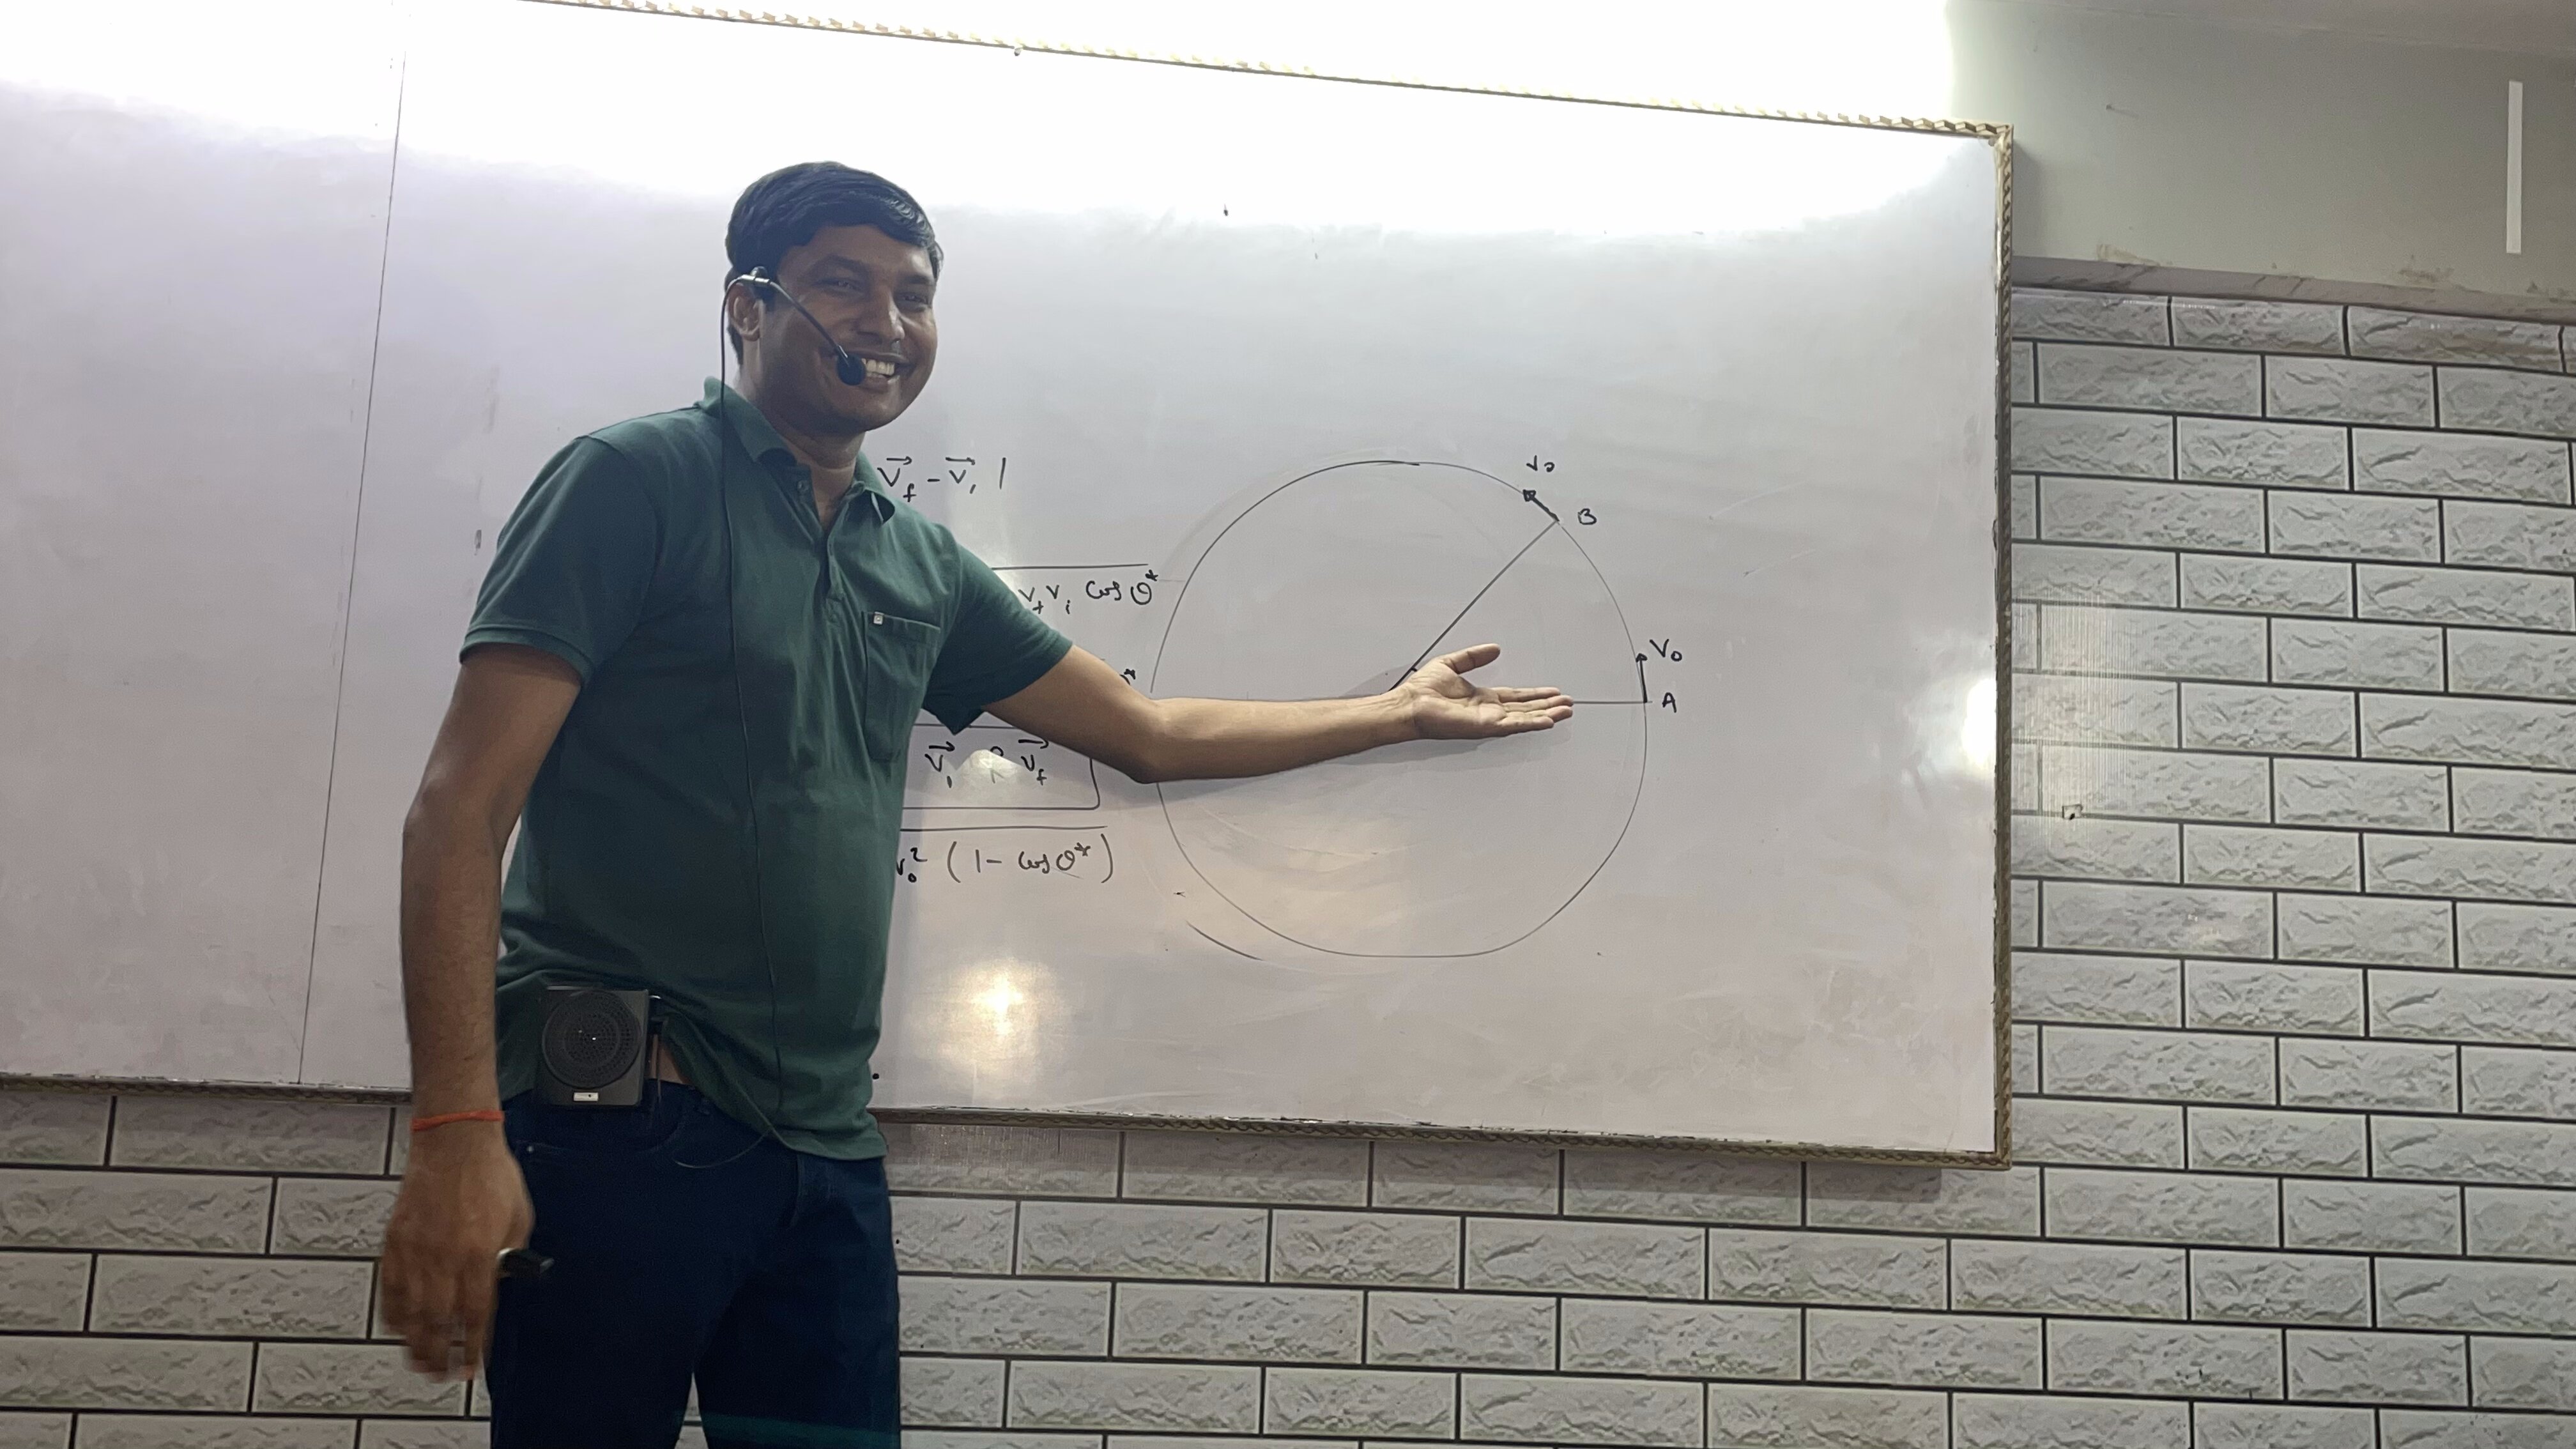 V⃗f - V⃗i |
vf vi cos θ*
*
V⃗i V⃗f
v₀² (1 - cos θ*)
V₀
B
V₀
A